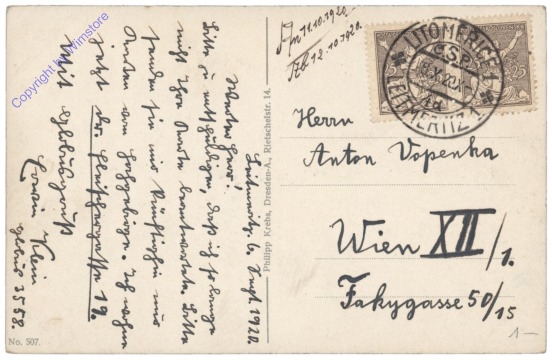 An 11.10.1920.
Rb 12.10.1920.
LITOMĚŘICE 1
Č.S.P.
LEITMERITZ 1
25
Herrn
Anton Vopenka
Wien XII/1.
Fakygasse 50/15
Leitmeritz, 6. Sept. 1920.
Werter Herr!
Bitte zu entschuldigen, daß ich so lange
nicht Ihre Karte beantwortete. Bitte
senden Sie mir Ansichten nur
Karten vom Hochgebirge. Ich wohne
jetzt
19.
Mit Globusgruß
Erwin Klein
Globus 3558.
No. 507.
Philipp Krebs, Dresden-A., Rietschelstr. 14.
1-
Copyright by Wimstore